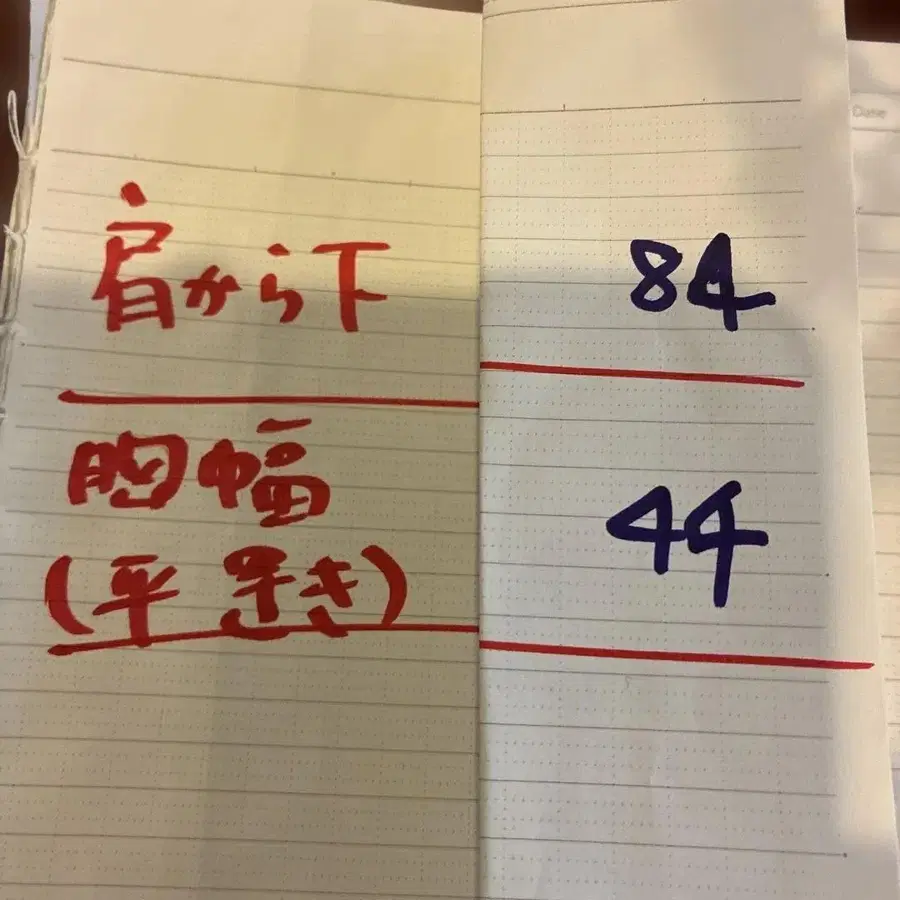 肩から下 84
胸幅 44
(平置き)
Date